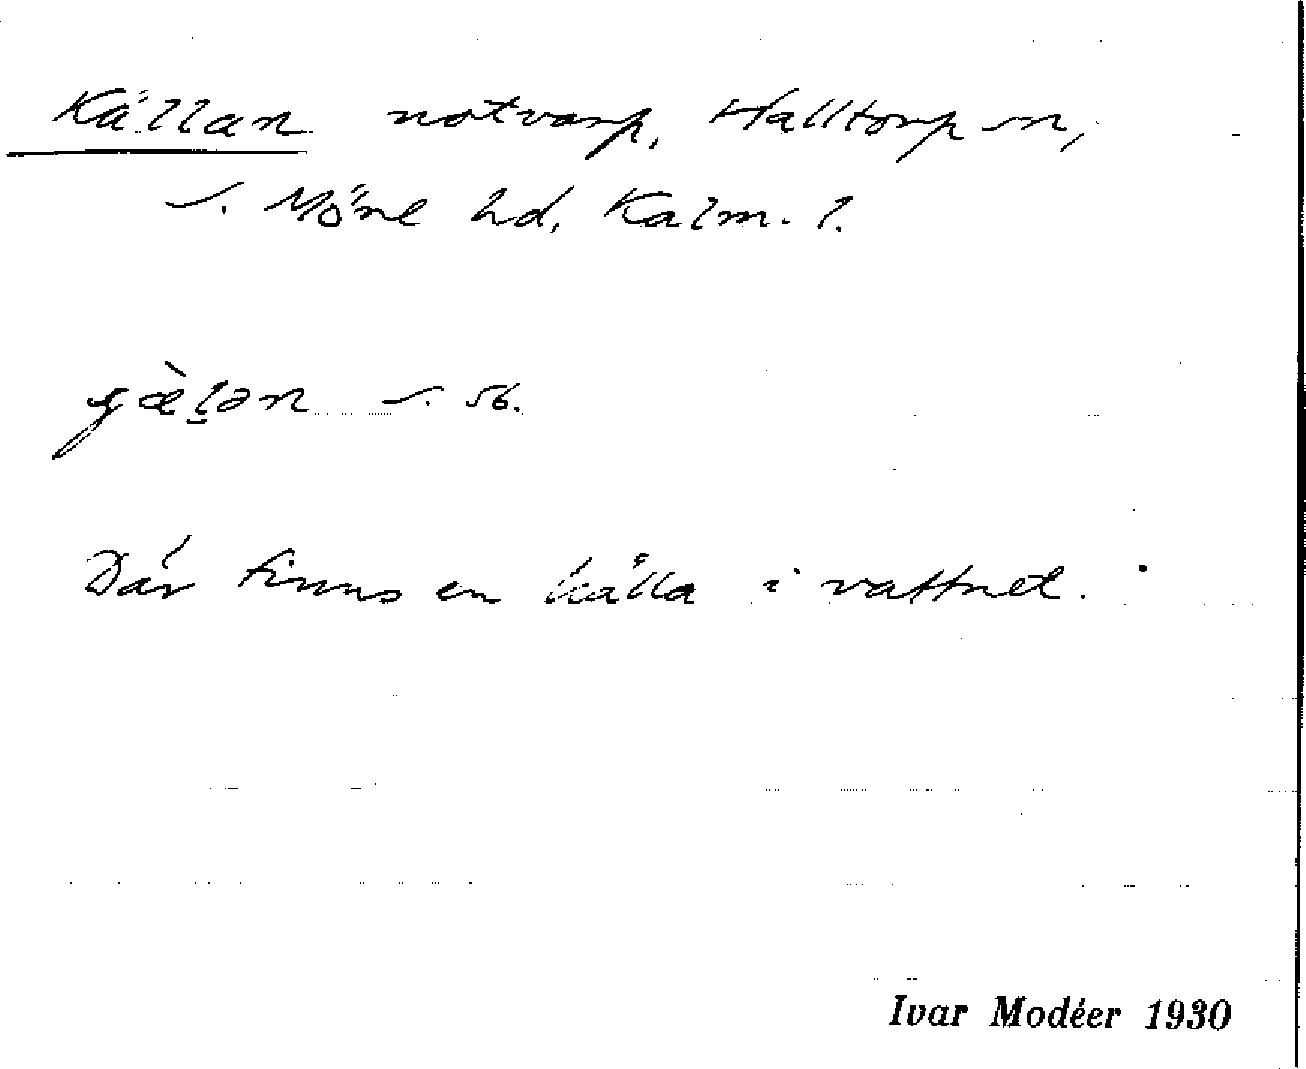 Källan notvarp, Halltorp sn,
S. Möre hd, Kalm. l.
s. 56.
Där finns en källa i vattnet.
Ivar Modéer 1930